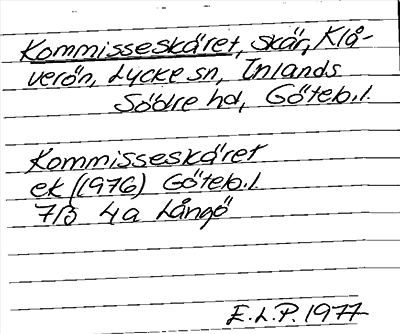 Kommisseskäret, skär, Klå-
verön, Lycke sn, Inlands
Södre hd, Göteb.l.
Kommisseskäret
ek (1976) Göteb.l.
7B 4a Långö
E.L.P. 1977